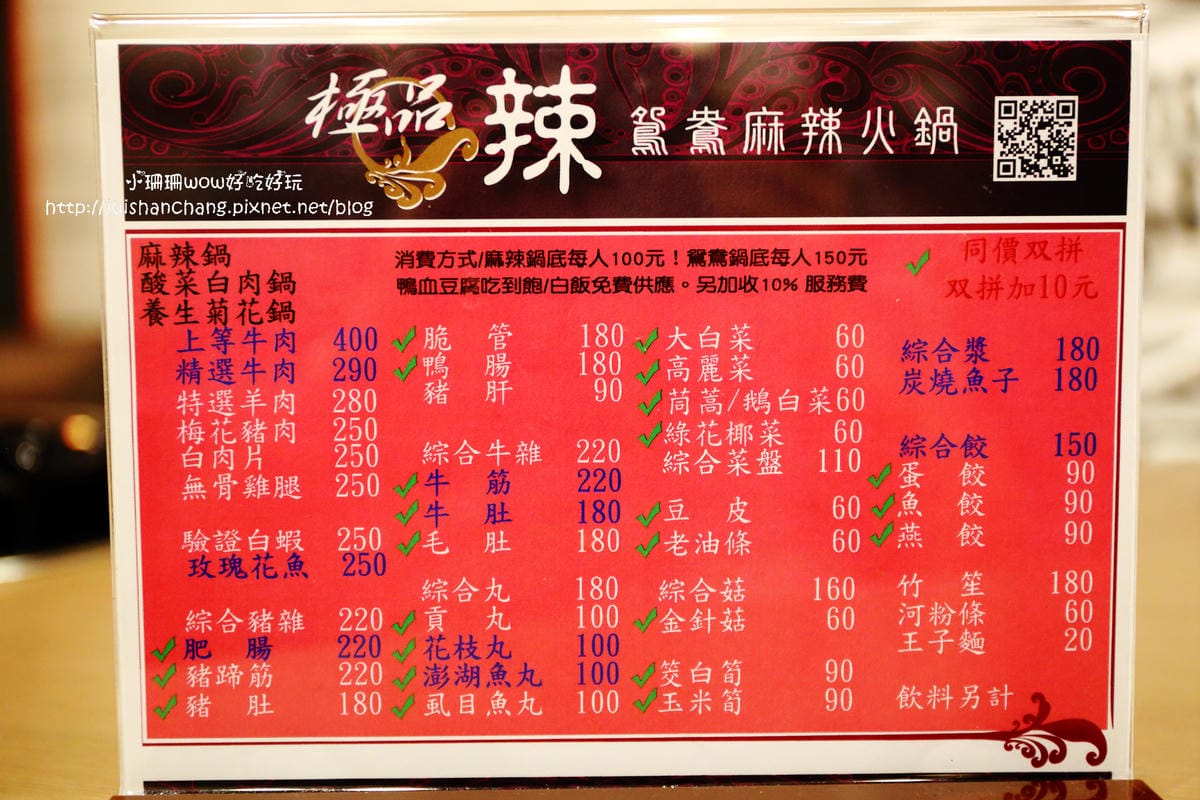 極品 辣 鴛鴦麻辣火鍋
小珊珊wow好吃好玩
http://juishanchang.pixnet.net/blog
麻辣鍋
酸菜白肉鍋
養生菊花鍋
消費方式/麻辣鍋底每人100元！鴛鴦鍋底每人150元
鴨血豆腐吃到飽/白飯免費供應。另加收10% 服務費
✓ 同價双拼
双拼加10元
上等牛肉 400
精選牛肉 290
特選羊肉 280
梅花豬肉 250
白肉片 250
無骨雞腿 250
驗證白蝦 250
玫瑰花魚 250
綜合豬雜 220
✓ 肥腸 220
✓ 豬蹄筋 220
✓ 豬肚 180
✓ 脆管 180
✓ 鴨腸 180
豬肝 90
綜合牛雜 220
✓ 牛筋 220
✓ 牛肚 180
✓ 毛肚 180
綜合丸 180
✓ 貢丸 100
✓ 花枝丸 100
✓ 澎湖魚丸 100
✓ 虱目魚丸 100
✓ 大白菜 60
✓ 高麗菜 60
✓ 茼蒿/鵝白菜60
✓ 綠花椰菜 60
綜合菜盤 110
✓ 豆皮 60
✓ 老油條 60
綜合菇 160
✓ 金針菇 60
✓ 筊白筍 90
✓ 玉米筍 90
綜合漿 180
炭燒魚子 180
綜合餃 150
✓ 蛋餃 90
✓ 魚餃 90
✓ 燕餃 90
竹笙 180
河粉條 60
王子麵 20
飲料另計